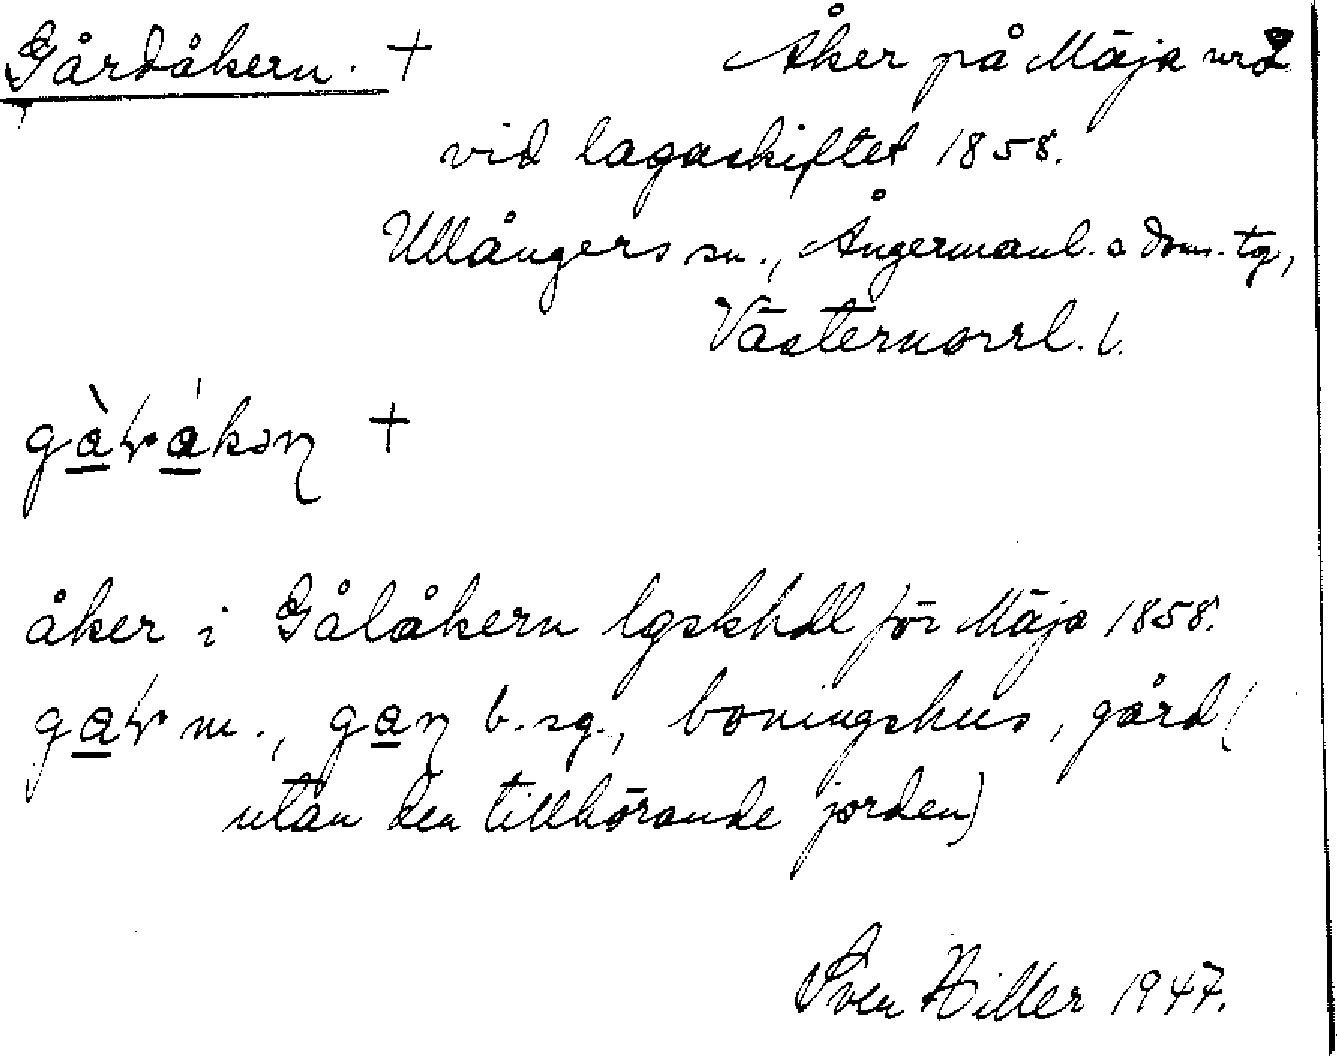 Gårdåkern. + Åker på Mäja nr 2
vid lagaskiftet 1858.
Ullångers sn., Ångermanl. s dom. tg,
Västernorrl. l.
+
åker i Gålåkern lgskhdl för Mäja 1858.
m., b. sg., boningshus, gård (
utan den tillhörande jorden)
Sven Hiller 1947.